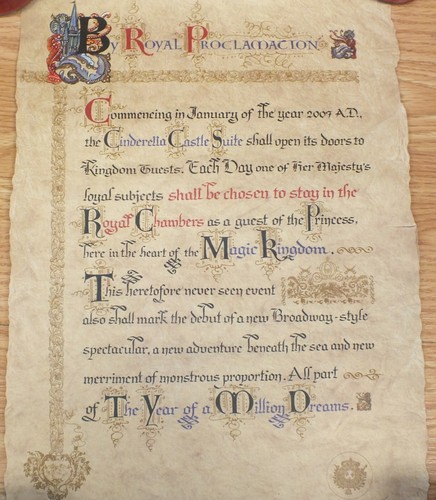 By Royal Proclamation
Commencing in January of the year 2007 A.D.,
the Cinderella Castle Suite shall open its doors to
Kingdom Guests. Each Day one of Her Majesty's
loyal subjects shall be chosen to stay in the
Royal Chambers as a guest of the Princess,
here in the heart of the Magic Kingdom.
This heretofore never seen event
also shall mark the debut of a new Broadway-style
spectacular, a new adventure beneath the sea and new
merriment of monstrous proportion. All part
of The Year of a Million Dreams.